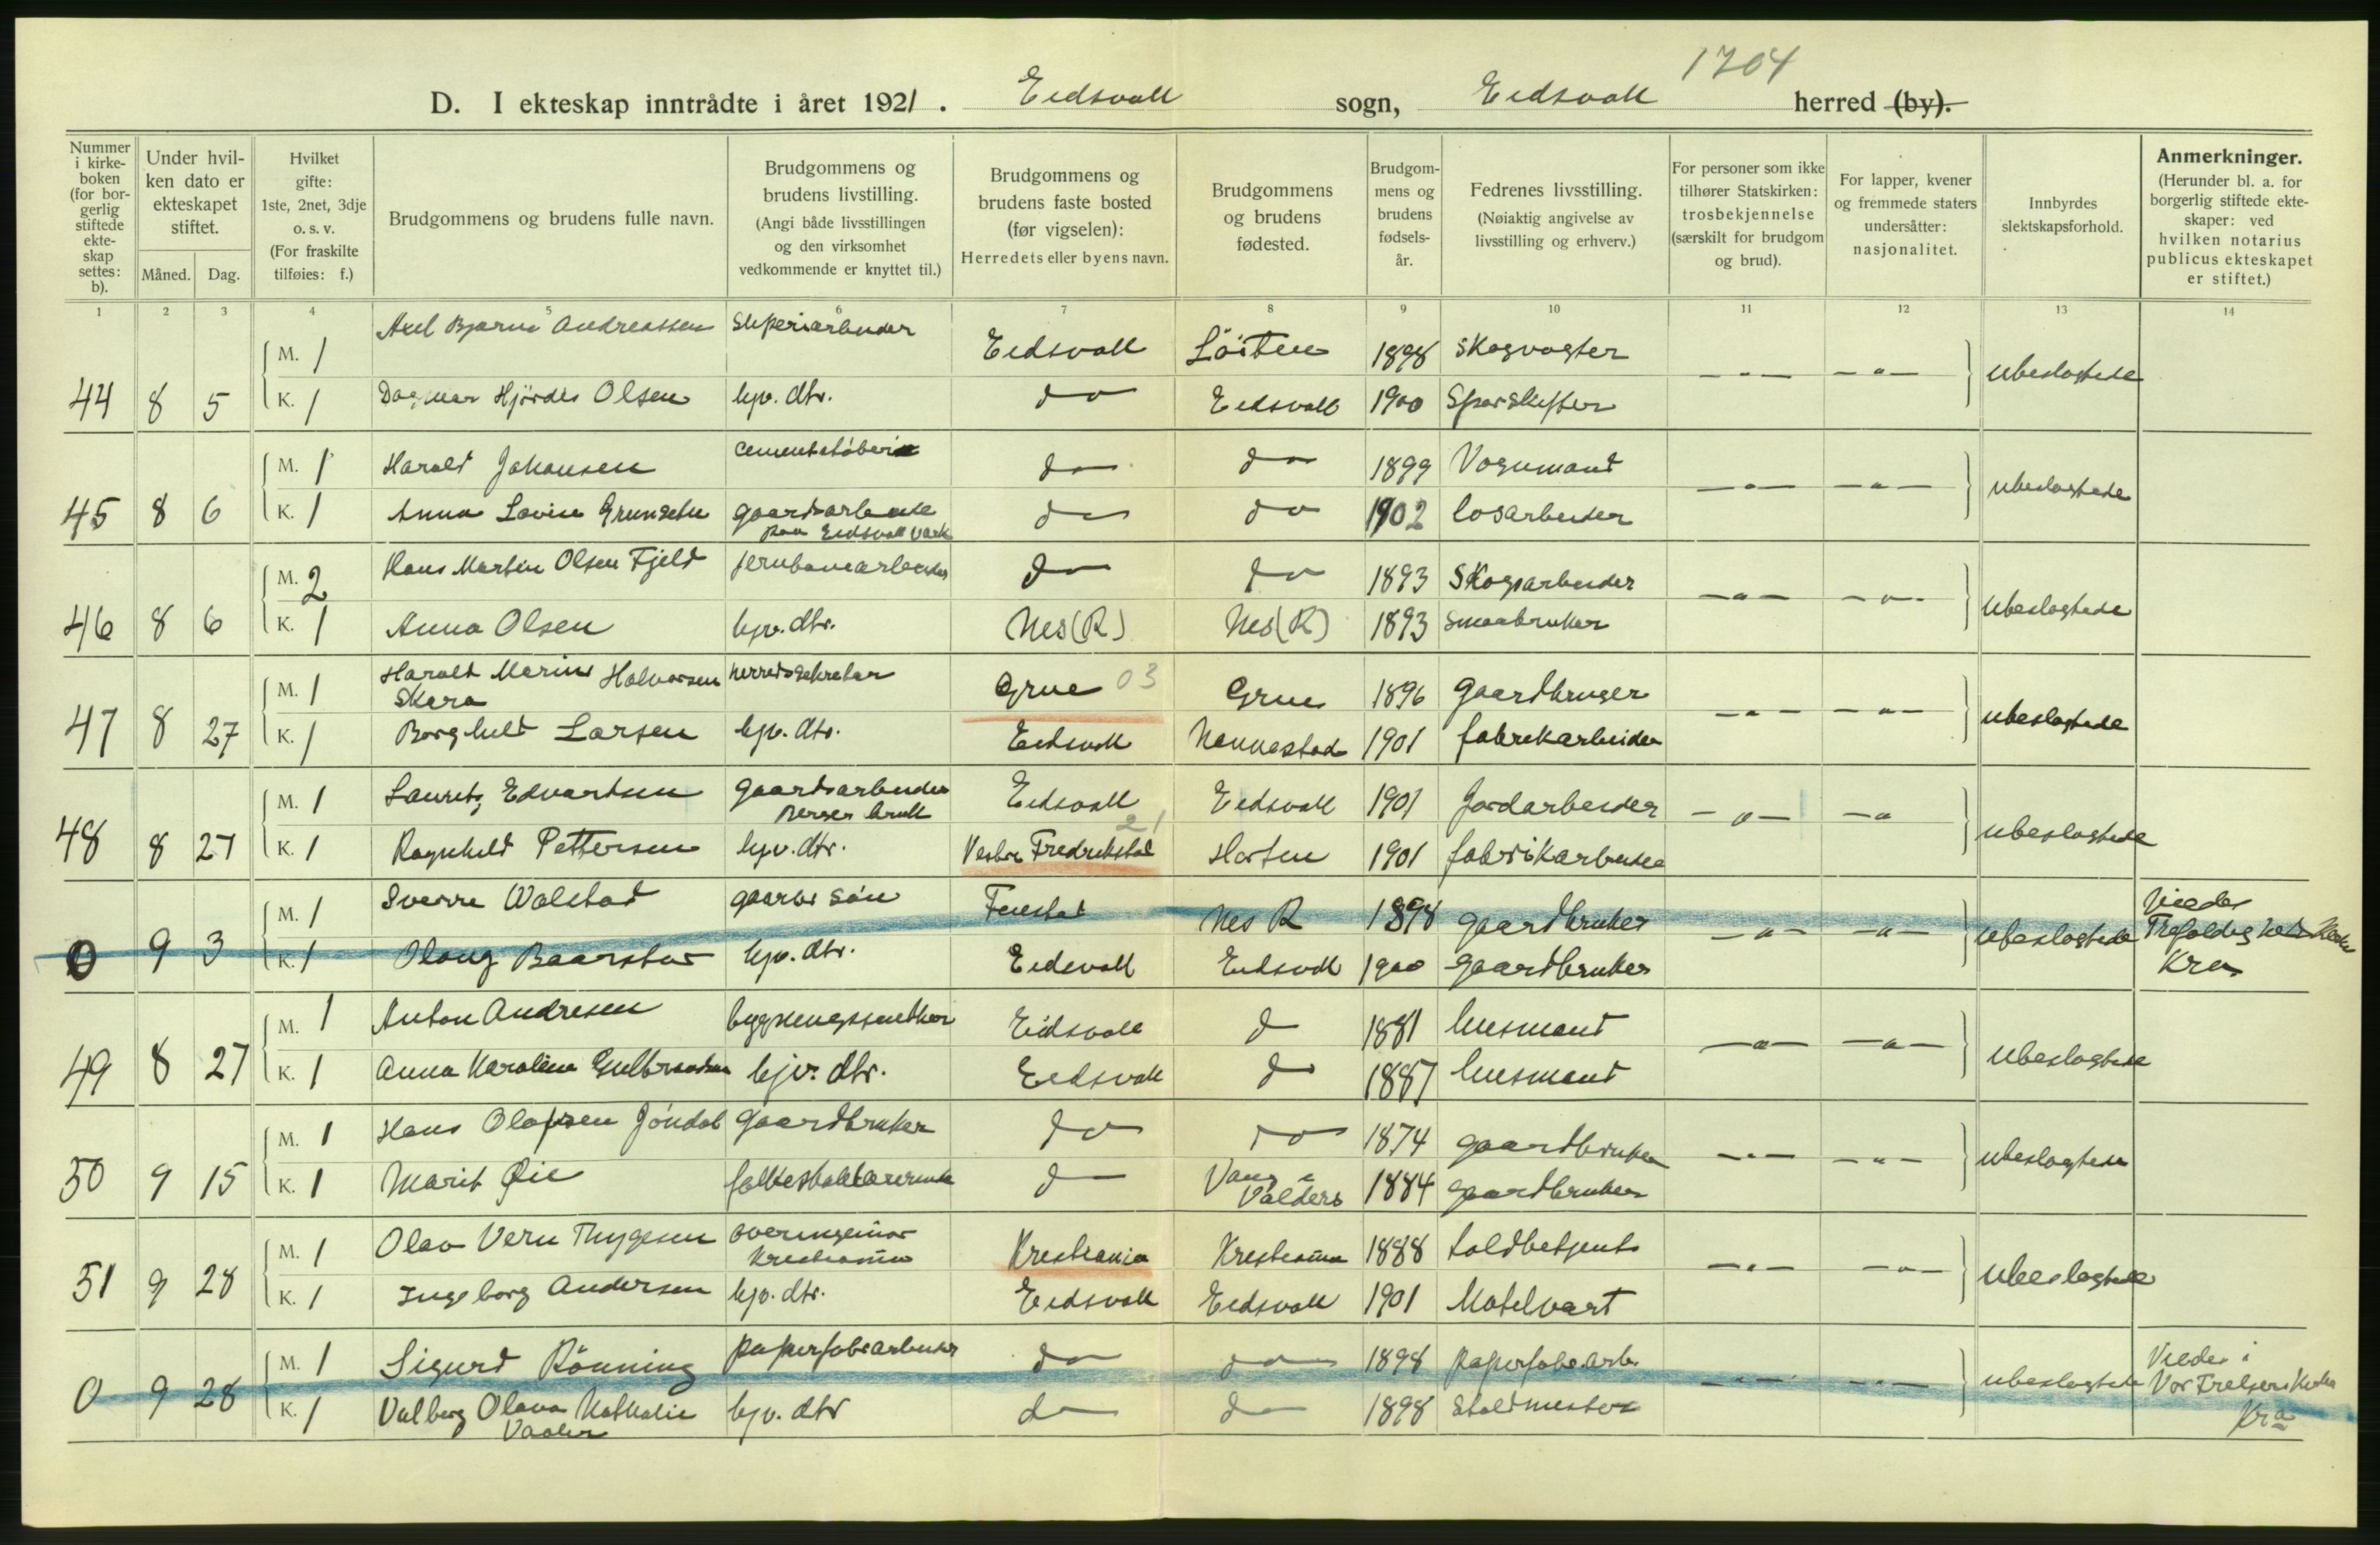 1204
D. I ekteskap inntrådte i året 1921. Eidsvoll sogn, Eidsvoll herred (by).
Nummer i kirkeboken (for borgerlig stiftede ekteskap settes: b).
Under hvilken dato er ekteskapet stiftet.
Måned. Dag.
Hvilket gifte: 1ste, 2net, 3dje o. s. v. (For fraskilte tilføies: f.)
Brudgommens og brudens fulle navn.
Brudgommens og brudens livstilling. (Angi både livsstillingen og den virksomhet vedkommende er knyttet til.)
Brudgommens og brudens faste bosted (før vigselen): Herredets eller byens navn.
Brudgommens og brudens fødested.
Brudgommens og brudens fødsels-år.
Fedrenes livsstilling. (Nøiaktig angivelse av livsstilling og erhverv.)
For personer som ikke tilhører Statskirken: trosbekjennelse (særskilt for brudgom og brud).
For lapper, kvener og fremmede staters undersåtter: nasjonalitet.
Innbyrdes slektskapsforhold.
Anmerkninger. (Herunder bl. a. for borgerlig stiftede ekteskaper: ved hvilken notarius publicus ekteskapet er stiftet.)
1 2 3 4 5 6 7 8 9 10 11 12 13 14
44 8 5 M. 1 Axel Bjarne Andreassen sliperiarbeider Eidsvoll Löiten 1898 skogvogter —"— —"— ubeslogtede
K. 1 Dagmar Hjördis Olsen hjv. dtr. do Eidsvoll 1900 Sporskifter
45 8 6 M. 1 Harald Johansen cementstöberi do do 1899 Vognmand —"— —"— ubeslogtede
K. 1 Anna Lovise Grunseth gaardsarbeide paa Eidsvoll Værk do do 1902 losarbeider
46 8 6 M. 2 Hans Martin Olsen Fjeld jernbanearbeider do do 1893 Skogsarbeider —"— —"— ubeslogtede
K. 1 Anna Olsen hjv. dtr. Nes (R) Nes (R) 1893 smaabruker
47 8 27 M. 1 Harald Marius Halvorsen Skara herredssekretær Grue 03 Grue 1896 gaardbruger —"— —"— ubeslogtede
K. 1 Borghild Larsen hjv. dtr. Eidsvoll Nannestad 1901 fabrikarbeider
48 8 27 M. 1 Lauritz Edvardsen gaardsarbeider Berger bruk Eidsvoll Eidsvoll 1901 Jordarbeider —"— —"— ubeslogtede
K. 1 Ragnhild Pettersen hjv. dtr. Vestre Fredrikstad 21 Horten 1901 fabrikarbeider
0 9 3 M. 1 Sverre Walstad gaardb. sön Fenstad Nes R 1898 gaardbruker —"— —"— ubeslogtede Viede Trefoldighets Kirke Kra
K. 1 Olaug Baarstad hjv. dtr. Eidsvoll Eidsvoll 1900 gaardbruker
49 8 27 M. 1 Anton Andresen bygningssnedker Eidsvoll do 1881 husmand —"— —"— ubeslogtede
K. 1 Anna Karoline Gulbrandsen hjv. dtr. Eidsvoll do 1887 husmand
50 9 15 M. 1 Hans Olafsen Jöndal Gaardbruker do do 1874 gaardbruker —"— —"— ubeslogtede
K. 1 Marit Øie folkeskolelærerinde do Vang i Valders 1884 gaardbruker
51 9 28 M. 1 Olav Vern Thygesen overingeniør Kristiania Kristiania Kristiania 1888 toldbetjent —"— —"— ubeslogtede
K. 1 Ingeborg Andersen hjv. dtr. Eidsvoll Eidsvoll 1901 Hotelvært
0 9 28 M. 1 Sigurd Rönning papirfabr.arbeider do do 1898 papirfabr.arb. —"— —"— ubeslogtede Viede i Vor Frelsers Kirke Kra
K. 1 Valborg Olava Nathalie Vaaler hjv. dtr do do 1898 Staldmester